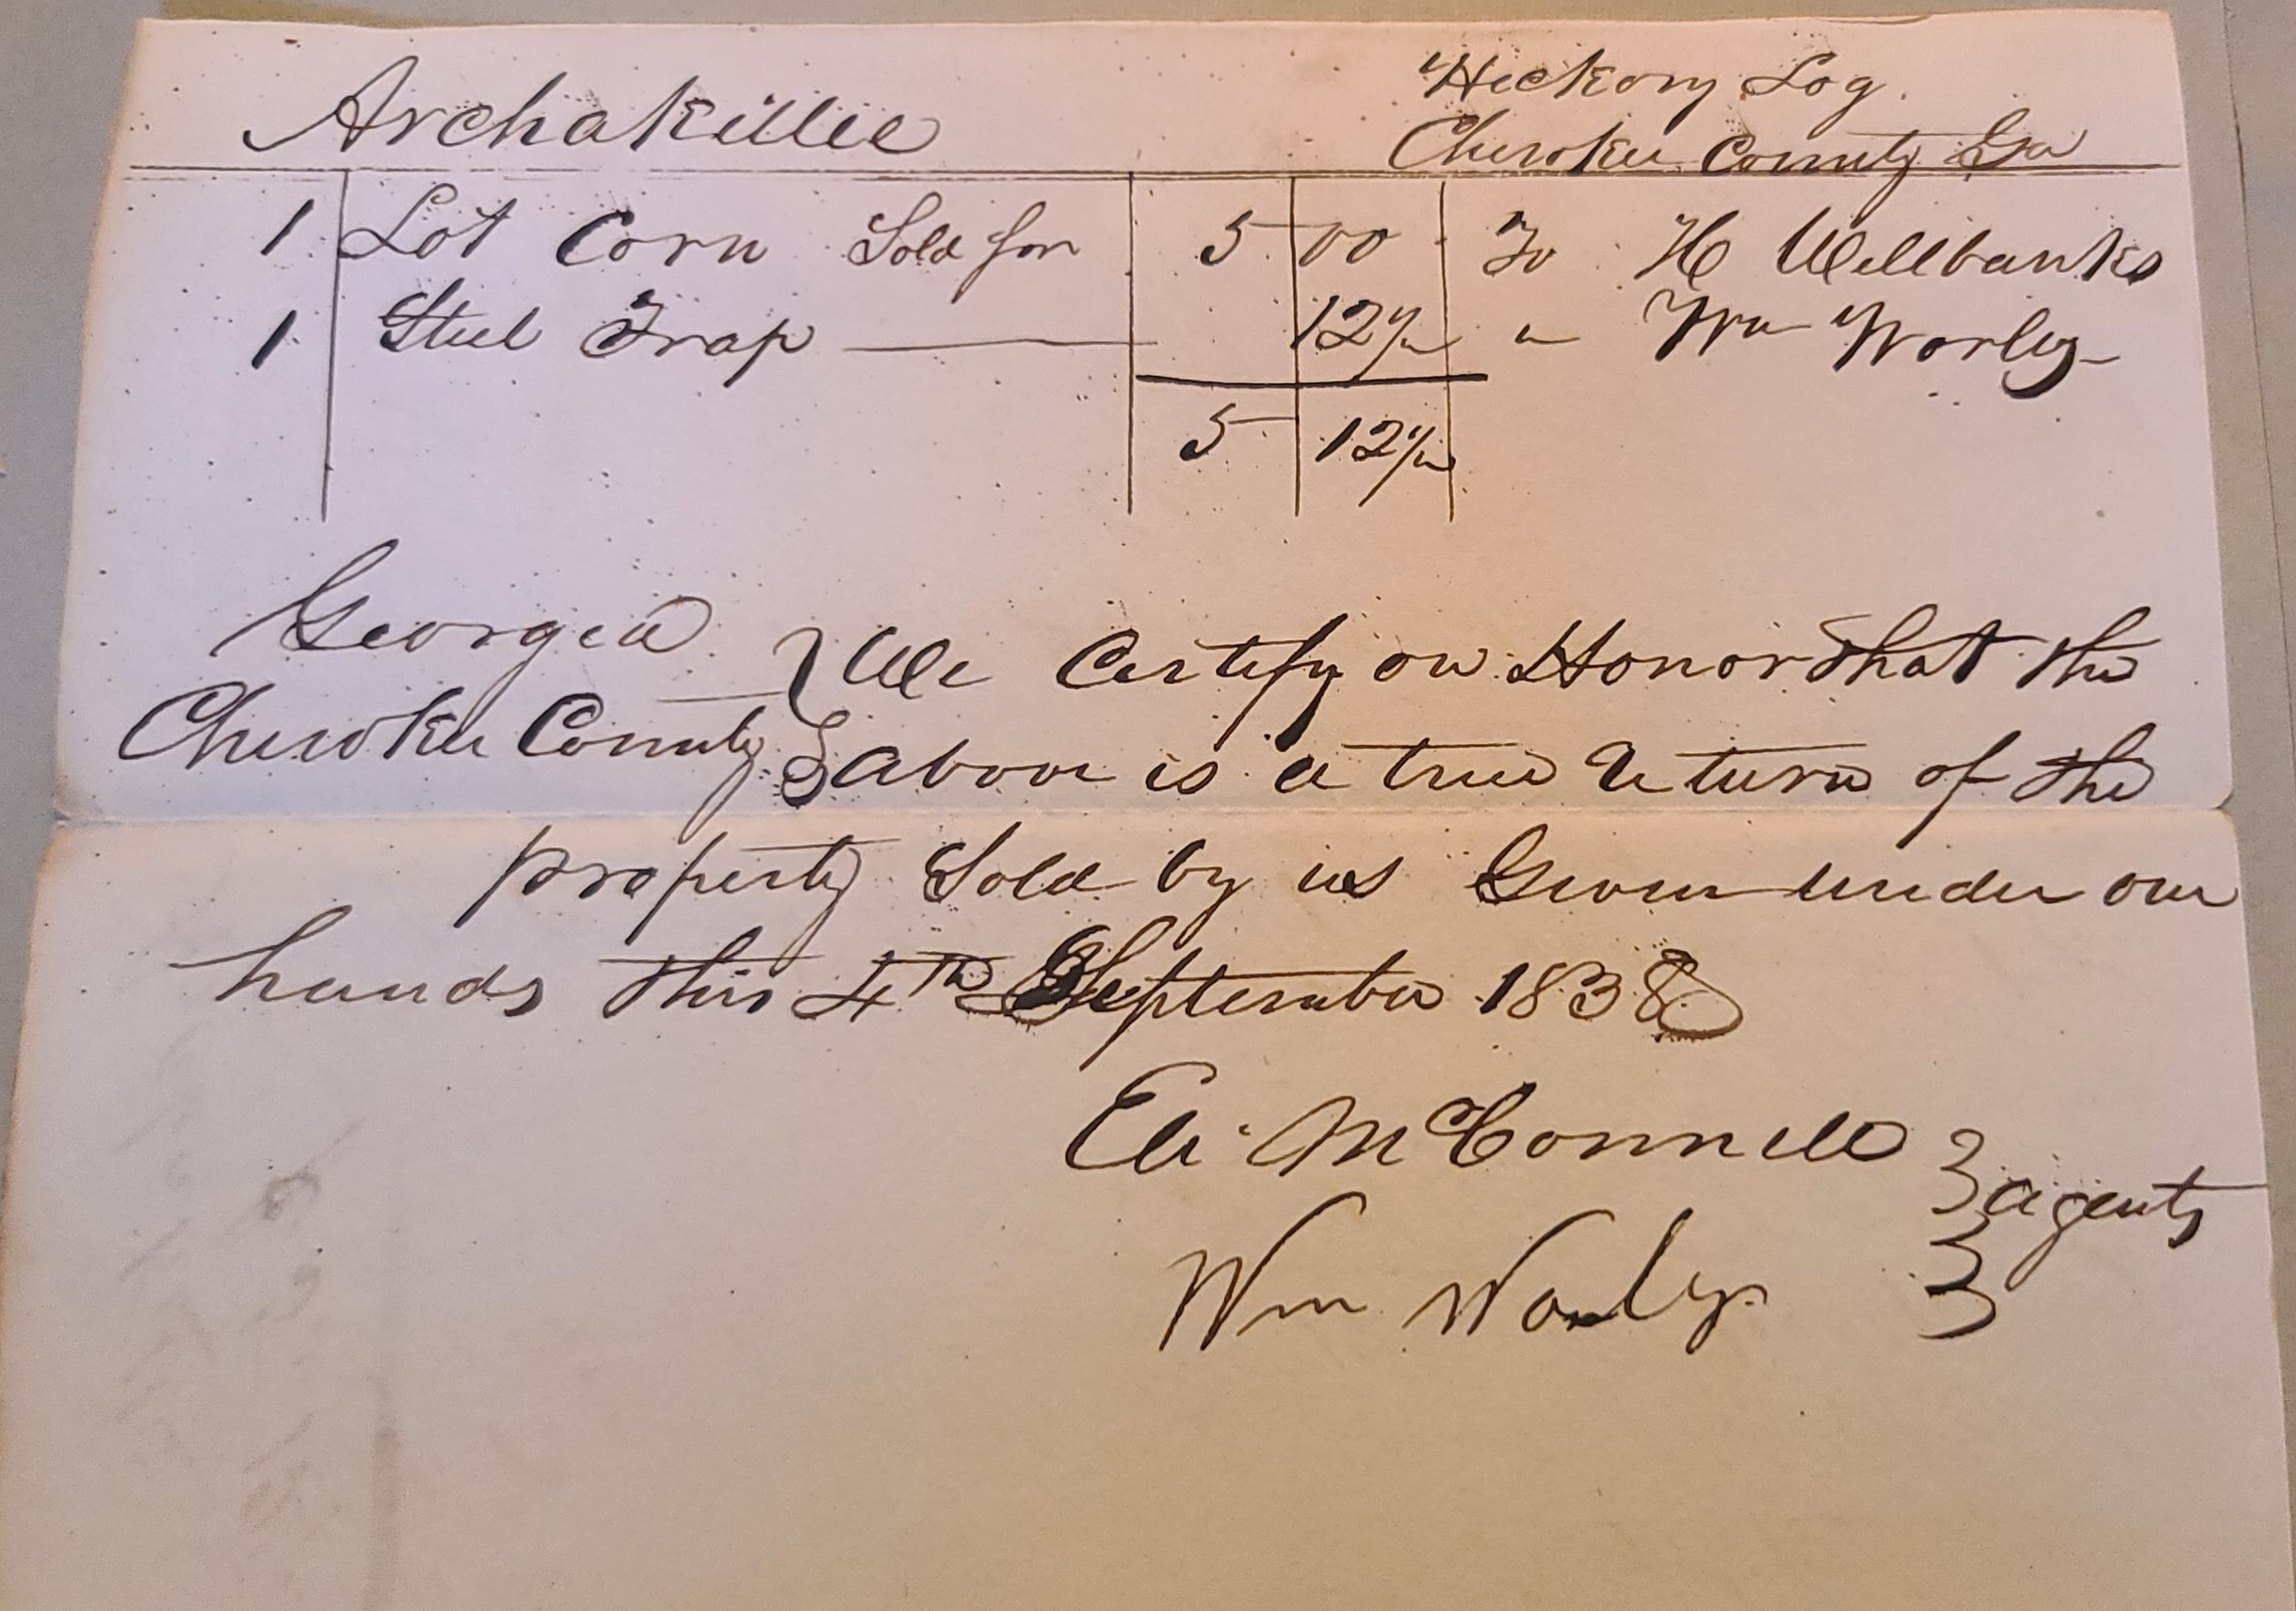 Archakillee
Hickory Log.
Cherokee County Ga
1 Lot Corn Sold for 5 00 To H Wellbanks
1 Steel Trap 12½ " Wm Worley
5 12½
Georgia
Cherokee County
We Certify on Honor that the
above is a true Return of the
property Sold by us Given under our
hands this 4th September 1838
Eli McConnell
agents
Wm Worley